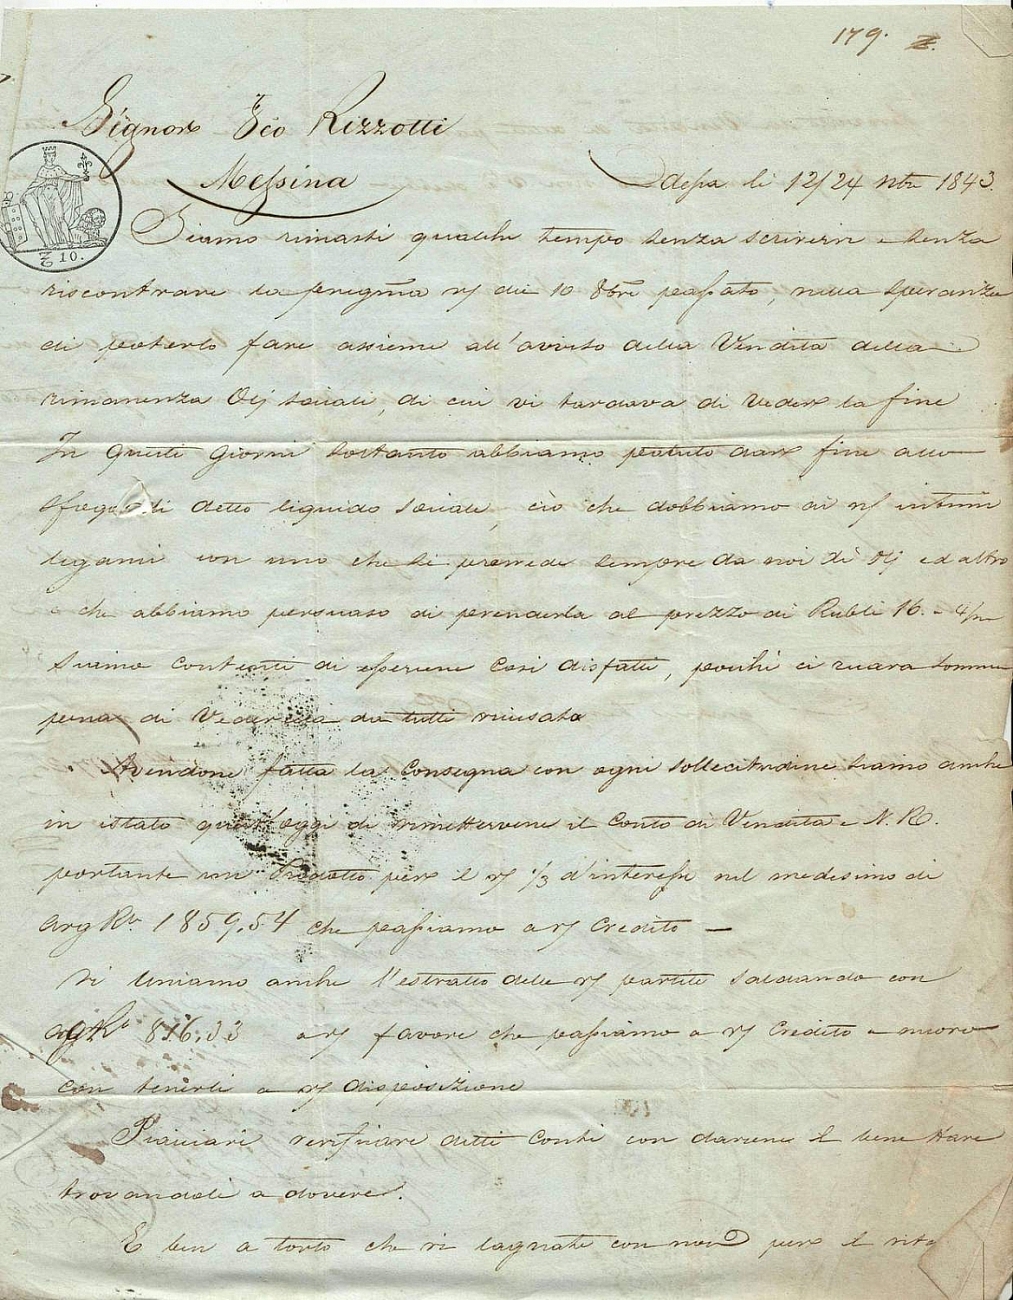 179.
Signor Fco Rizzotti
Messina
Odessa li 12/24 9bre 1843.
10.
Siamo rimasti qualche tempo senza scrivervi e senza
riscontrare la pregma di die 10 8bre passato, nella speranza
di poterlo fare assieme all'avviso della Vendita della
rimanenza Olj sociali, di cui vi tardava di Veder la fine
In questi giorni soltanto abbiamo potuto dare fine allo
sfogo di detto liquido sociale, ciò che dobbiamo ai
legami con uno che si provvede sempre da noi di Olj ed altro
e che abbiamo persuaso di prenderla al prezzo di Rubli 16.
Siamo contenti di essercene così disfatti, poichè ci
pena di Vedercela da tutti ricusata
Avendone fatta la Consegna con ogni sollecitudine siamo anche
in istato quest'oggi di rimettervene il Conto di Vendita e N. R.
portante un Prodotto per il 1/3 d'interesse nel medesimo di
arg Ro 1859.54 che passiamo a Credito —
Vi Uniamo anche l'estratto delle partite saldando con
816.33 a favore che passiamo a Credito a nuovo
con tenerli a disposizione
Piacciavi verificare detti Conti con darcene il bene stare
trovandoli a dovere.
E ben a torto che vi lagnate con noi per il